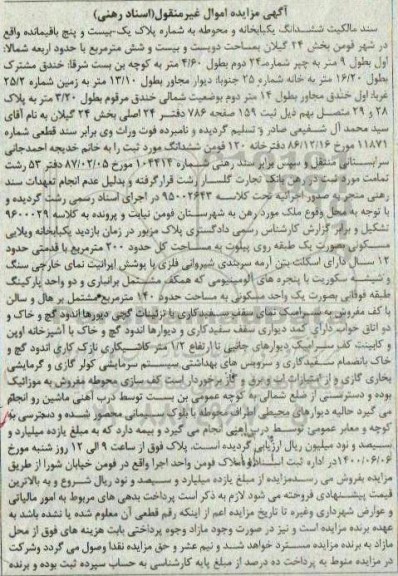 آگهی مزایده اموال غیرمنقول(اسناد رهنی)
سند مالکیت ششدانگ یکبابخانه و محوطه به شماره پلاک یک-بیست و پنج باقیمانده واقع
در شهر فومن بخش ۲۴ گیلان بمساحت دویست و بیست و شش مترمربع با حدود اربعه شمالا:
اول بطول ۹ متر به چپر شماره۲۴ دوم بطول ۴/۶۰ متر به کوچه بن بست شرقا: خندق مشترک
بطول ۱۶/۲۰ متر به خانه شماره ۲۵ جنوبا: دیوار مجاور بطول ۱۳/۱۰ متر به زمین شماره ۲۵/۲
غربا: اول خندق مجاور بطول ۱۴ متر دوم بوضعیت شمالی خندق مرقوم بطول ۳/۲۰ متر به پلاک
۲۸ و ۲۹ متصل بهم ذیل ثبت ۱۵۹ صفحه ۷۸۶ دفتر ۲۴ اصلی بخش ۲۴ گیلان به نام آقای
سید محمد آل شفیعی صادر و تسلیم گردیده و نامبرده فوت وراث وی برابر سند قطعی شماره
۱۱۸۷۱ مورخ ۸۶/۱۲/۱۶ دفترخانه ۱۲۰ فومن ششدانگ مورد ثبت را به خانم خدیجه احمدجانی
سرابستانی منتقل و سپس برابر سند رهنی شماره ۱۰۴۴۱۴ مورخ ۸۷/۰۲/۰۵ دفتر ۵۳ رشت
تمامت مورد ثبت در رهن بانک تجارت گلسار رشت قرار گرفته و بدلیل عدم انجام تعهدات سند
رهنی منجر به صدور اجرائیه تحت کلاسه ۹۵۰۰۲۶۴۳ در اجرای اسناد رسمی رشت گردیده و
با توجه به محل وقوع ملک مورد رهن به شهرستان فومن نیابت و پرونده به کلاسه ۹۶۰۰۰۲۹
تشکیل و برابر گزارش کارشناس رسمی دادگستری پلاک مزبور در زمان بازدید یکبابخانه ویلایی
مسکونی بصورت یک طبقه روی پیلوت به مساحت کل حدود ۲۰۰ مترمربع با قدمتی حدود
۱۲ سال دارای اسکلت بتن آرمه سربندی شیروانی فلزی با پوشش ایرانیت نمای خارجی سنگ
و سکوریت با پنجره های آلومینیومی که همکف مشتمل برانباری و دو واحد پارکینگ
طبقه فوقانی بصورت یک واحد مسکونی به مساحت حدود ۱۴۰ مترمربع مشتمل بر هال و سالن
با کف مفروش به سرامیک نمای سقف سفیدکاری با تزئینات گچی دیوارها اندود گچ و خاک و
دو اتاق خواب دارای کمد دیواری سقف سفیدکاری و دیوارها اندود گچ و خاک با آشپزخانه اوپن
و کابینت کف سرامیک دیوارهای جانبی تا ارتفاع ۱/۲ متر کاشیکاری نازک کاری اندود گچ و
خاک بانضمام سفیدکاری و سرویس های بهداشتی سیستم سرمایشی کولر گازی و گرمایشی
بخاری گازی و از امتیازات آب و برق و گاز برخوردار است کف سازی محوطه مفروش به موزائیک
بوده و دسترسی از ضلع شمالی به کوچه عمومی بن بست توسط درب آهنی ماشین رو انجام
می گیرد حالیه دیوارهای محیطی اطراف محوطه با بلوک سیمانی محصور شده و دسترسی به
کوچه و معابر عمومی توسط درب آهنی انجام می گیرد و بیمه دارد که به مبلغ یازده میلیارد و
سیصد و نود میلیون ریال ارزیابی گردیده است. پلاک فوق از ساعت ۹ الی ۱۲ روز شنبه مورخ
۱۴۰۰/۰۶/۰۶ در اداره ثبت اسناد و املاک فومن واحد اجرا واقع در فومن خیابان شورا از طریق
مزایده بفروش می رسد.مزایده از مبلغ یازده میلیارد و سیصد و نود ریال شروع و به بالاترین
قیمت پیشنهادی فروخته می شود لازم به ذکر است پرداخت بدهی های مربوط به امور مالیاتی
و عوارض شهرداری وغیره تا تاریخ مزایده اعم از اینکه رقم قطعی آن معلوم شده یا نشده باشد به
عهده برنده مزایده است و نیز در صورت وجود مازاد وجوه پرداختی بابت هزینه های فوق از محل
مازاد به برنده مزایده مسترد خواهد شد و نیم عشر و حق مزایده نقدا وصول می گردد وشرکت
در مزایده منوط به پرداخت ده درصد از مبلغ پایه کارشناسی به حساب سپرده ثبت بوده و برنده